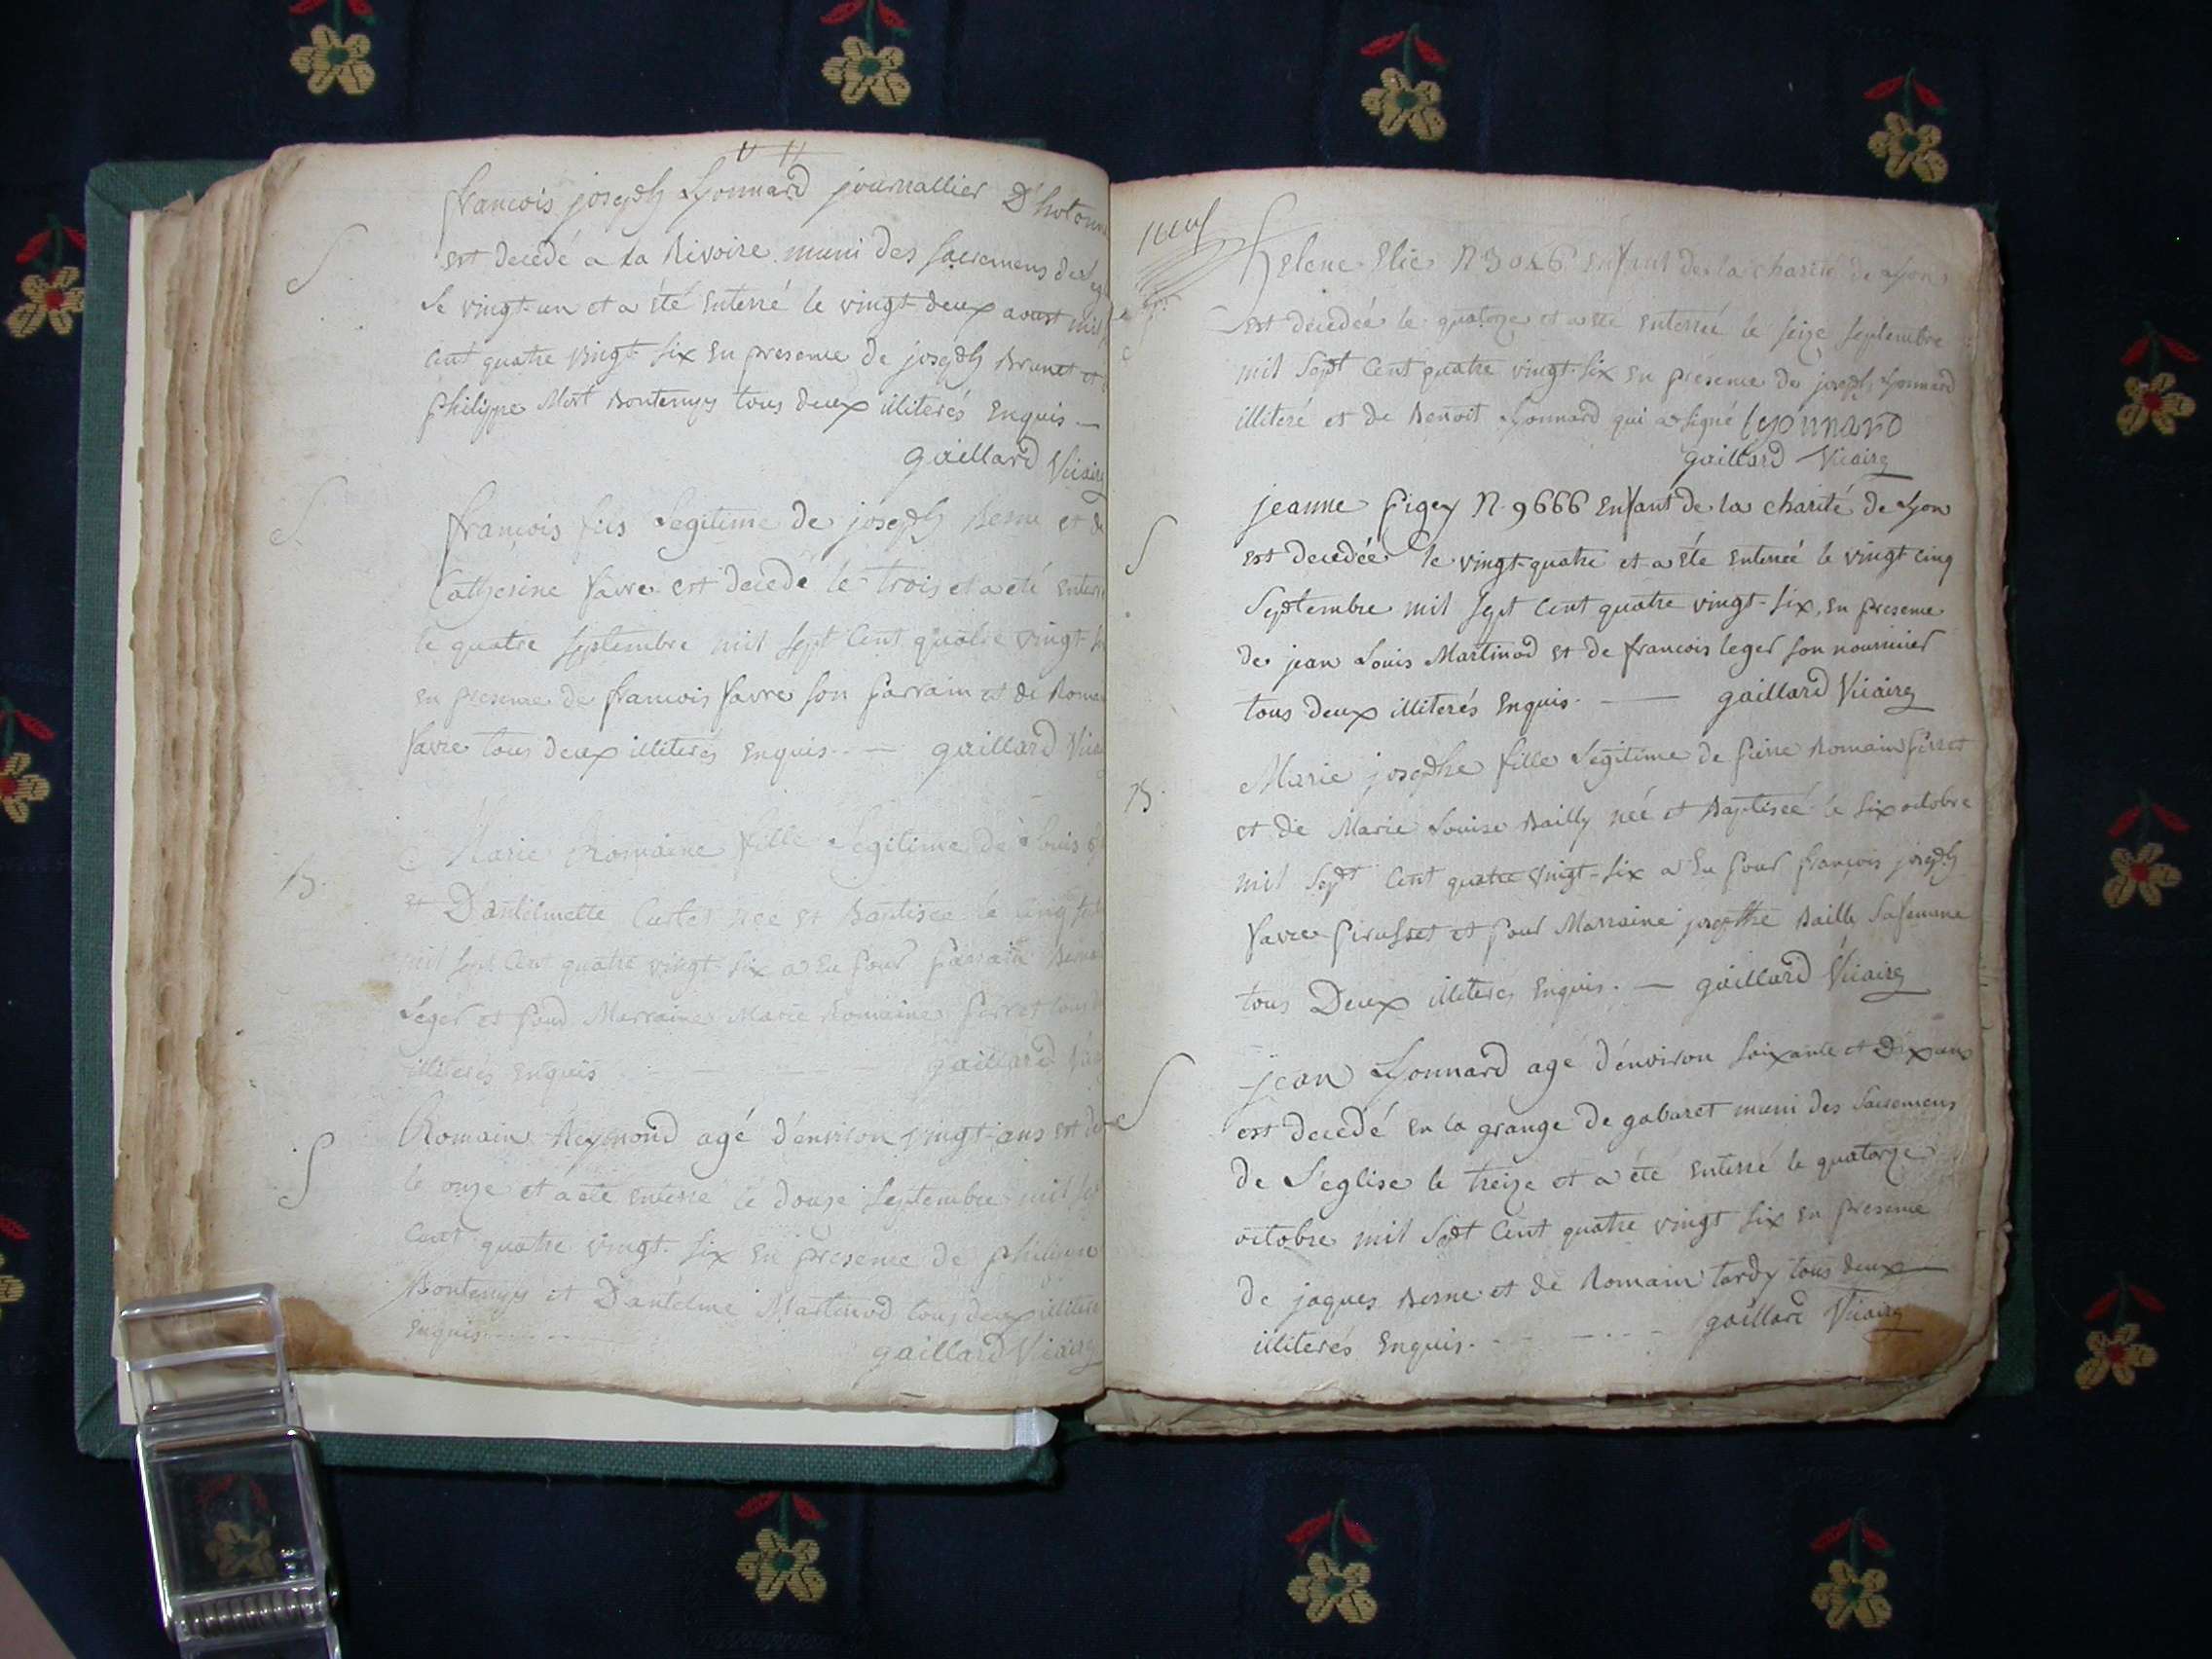 françois joseph Lyonnard journallier D'hotonne
est decedé a La Rivoire muni des sacremens de
Le vingt-un et a été Enterré le vingt-deux aoust mil
cent quatre vingt-six En presence de joseph Brunet et
philippe Mort Bontemps tous deux illiterés Enquis —
gaillard Vicaire
S.
S.
françois fils Legitime de joseph Berne et de
Catherine favre est decedé le trois et a eté enterré
le quatre septembre mil sept Cent quatre vingt-
en presence de francois favre son parrain et de Romain
favre tous deux illiterés Enquis - - — gaillard
B.
Marie Romaine fille Legitime de Louis
et D'antelmette Curtet née et Baptisee le cinq
mil sept Cent quatre vingt-six a Eu pour parrain
Leger et pour Marraine Marie Romaine perret tous
illiterés Enquis
gaillard
S
Romain Reymond agé d'environ vingt-ans est
le onze et a eté enterré le douze septembre mil
Cent quatre vingt-six En presence de philippe
Bontemps et D'antelme Martinod tous deux illiterés
Enquis
gaillard Vicaire
helene Elie N 3046 Enfant de la charité de Lyon
est decedée le quatorze et a eté enterrée le seize septembre
mil sept Cent quatre vingt-six En presence de joseph Lyonnard
illiteré et de Benoit Lyonnard qui a signé Leyonnard
gaillard Vicaire
S
jeanne pigey N. 9666 Enfant de la charité de Lyon
est decedée le vingt-quatre et a éte enterreé le vingt cinq
septembre mil sept cent quatre vingt-six, en presence
de jean Louis Martinod et de francois leger son nourricier
tous deux illiterés Enquis. — gaillard Vicaire
B.
Marie josephe fille Legitime de pierre Romain perret
et de Marie Louise Bailly née et Baptiseé le six octobre
mil sept Cent quatre vingt-six a Eu pour françois joseph
favre pirusset et pour Marraine josephe Bailly sa femme
tous Deux illiteres Enquis. — gaillard Vicaire
S
jean Lyonnard agé d'environ soixante et Dix ans
est decedé en la grange de gabaret muni des sacremens
de L'eglise le treize et a été enterré le quatorze
octobre mil sept Cent quatre vingt six en presence
de jaques Berne et de Romain tardy tous deux
illiterés Enquis. - - — - - gaillard Vicaire